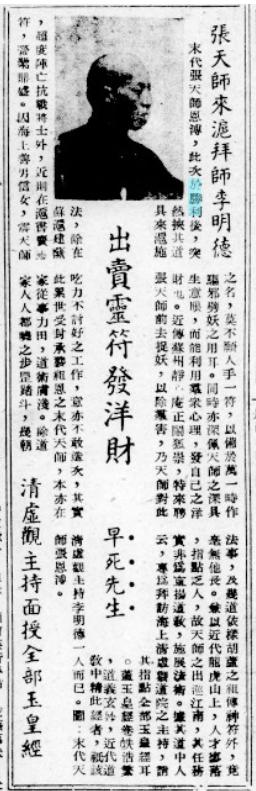 張天師來滬拜師李明德
出賣靈符發洋財
早死先生
清虛觀主持面授全部玉皇經
末代張天師恩溥,此次於勝利後,突
然挾其道
具來滬施
法,除在
蘇滬建醮
,超度陣亡抗戰將士外,近則在滬書賣靈
符,營業鼎盛。因海上善男信女,震天師
之名,莫不願人手一符,以備於萬一時作
驅邪剿妖之用耳。同時亦深佩天師之深具
生意眼,而能利用羣衆心理,發自己之洋
財也。近傳蘇州靜 庵正鬧狐祟,特來聘
張天師前去捉妖,以除羣害,乃天師對此
吃力不討好之工作,意亦不敢造次,其實
此累世受封承襲祖恩之末代天師,本亦在
家從事力田,道術膚淺。除道
家人人都曉之步罡踏斗,幾朝
法事,及幾道依樣葫蘆之祖傳神符外,竟
毫無他長。兼以近代龍虎山上,人才 落
,指點乏人,故天師之出巡江南,其任務
實非爲宣揚道敎,施展法術。據其道中人
云,專爲拜訪海上清虛觀道院之主持,請
其指點全部玉皇經耳
。蓋玉皇經卷帙浩繁
,道義玄妙,近代道
敎中精此經者,祇該
清虛觀主持李明德一
人而已。圖:末代天
師張恩溥。